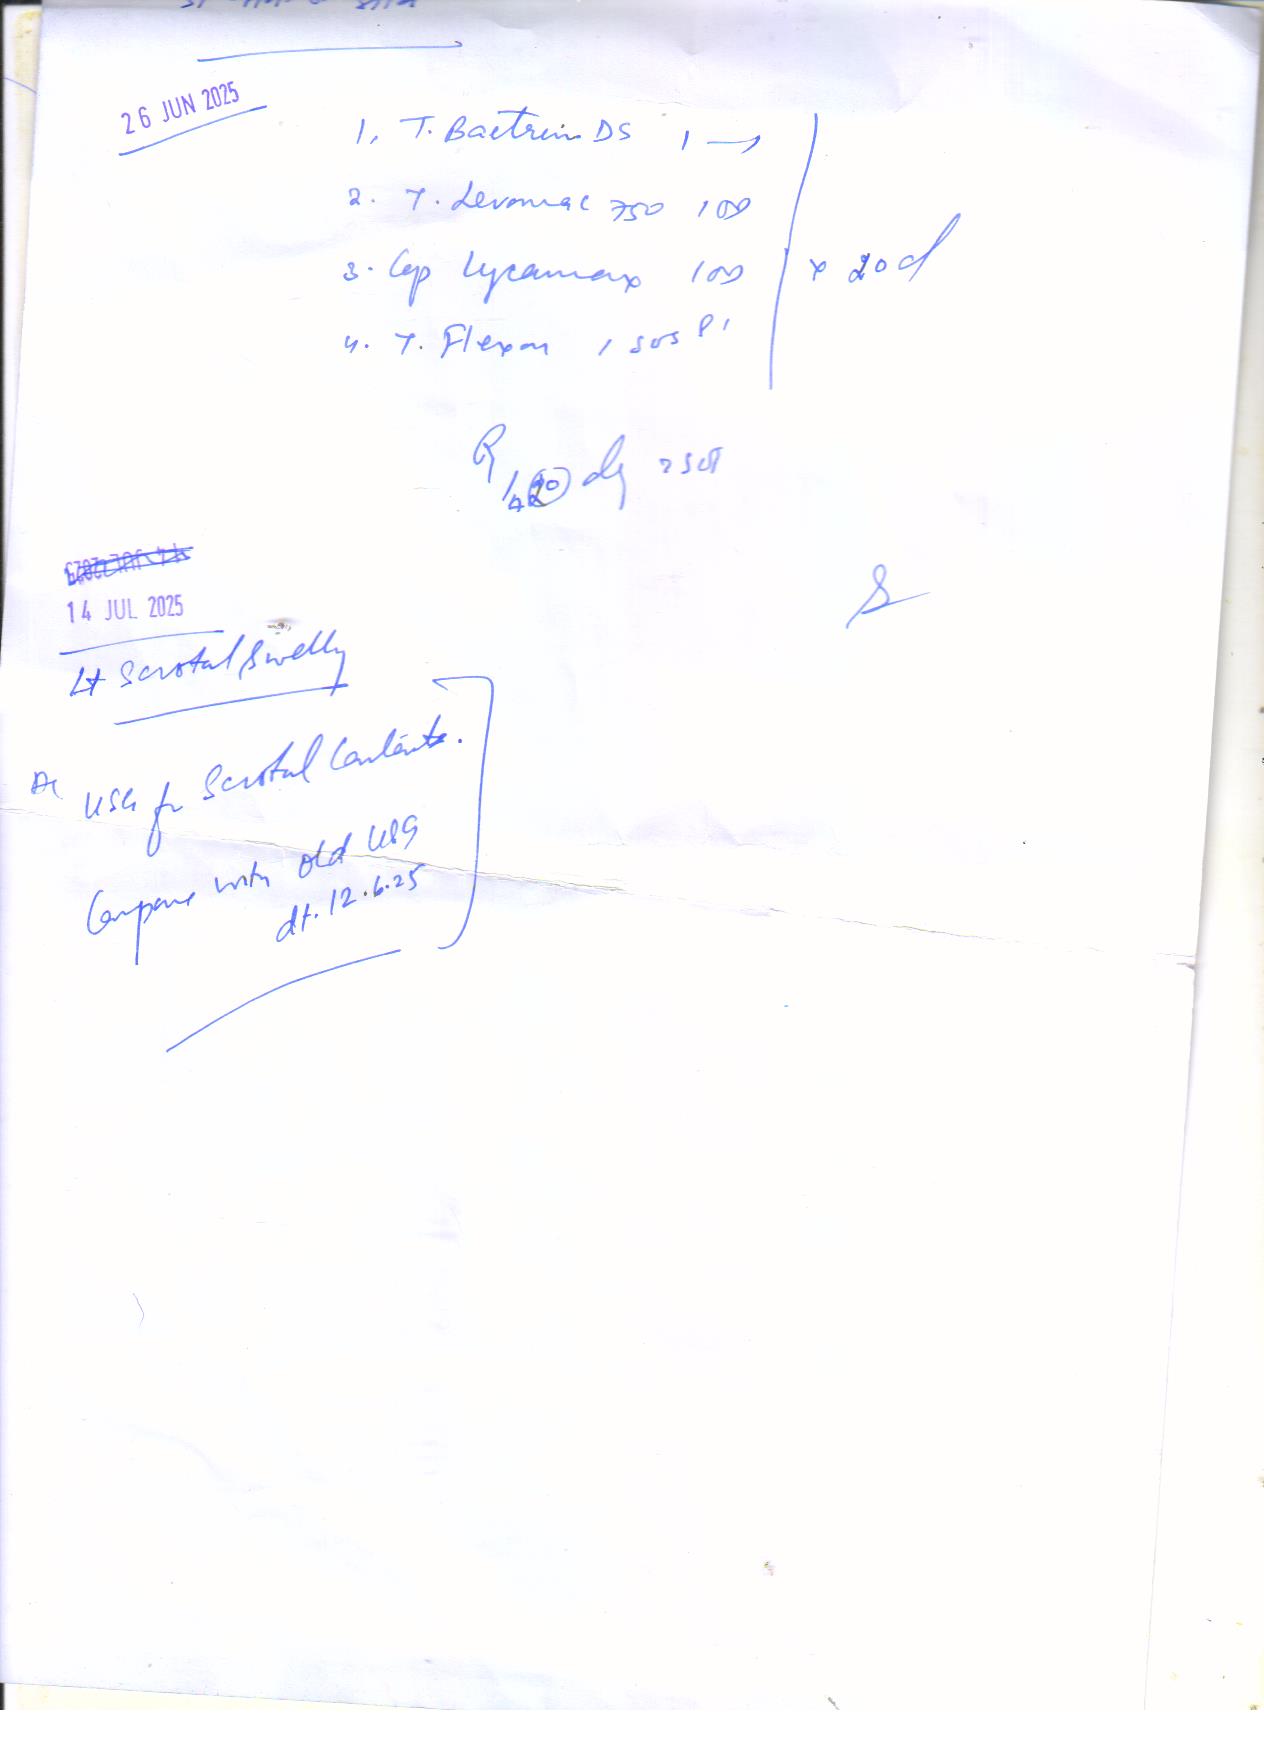 26 JUN 2025
1, T. Bactrim DS 1 →
2. T. Levomac 750 1 OD
3. Cap Lycamax 1 OD
4. T. Flexon 1 SOS
x 20 d
14 JUL 2025
Lt Scrotal Swelly
USG for Scrotal Contents.
Compare with old USG
dt. 12.6.25